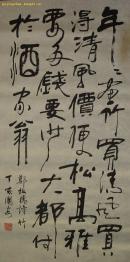 年〻畫竹買清風買
得清風價便松高雅
要多錢要少大都付
於酒家翁
鄭板橋詩竹